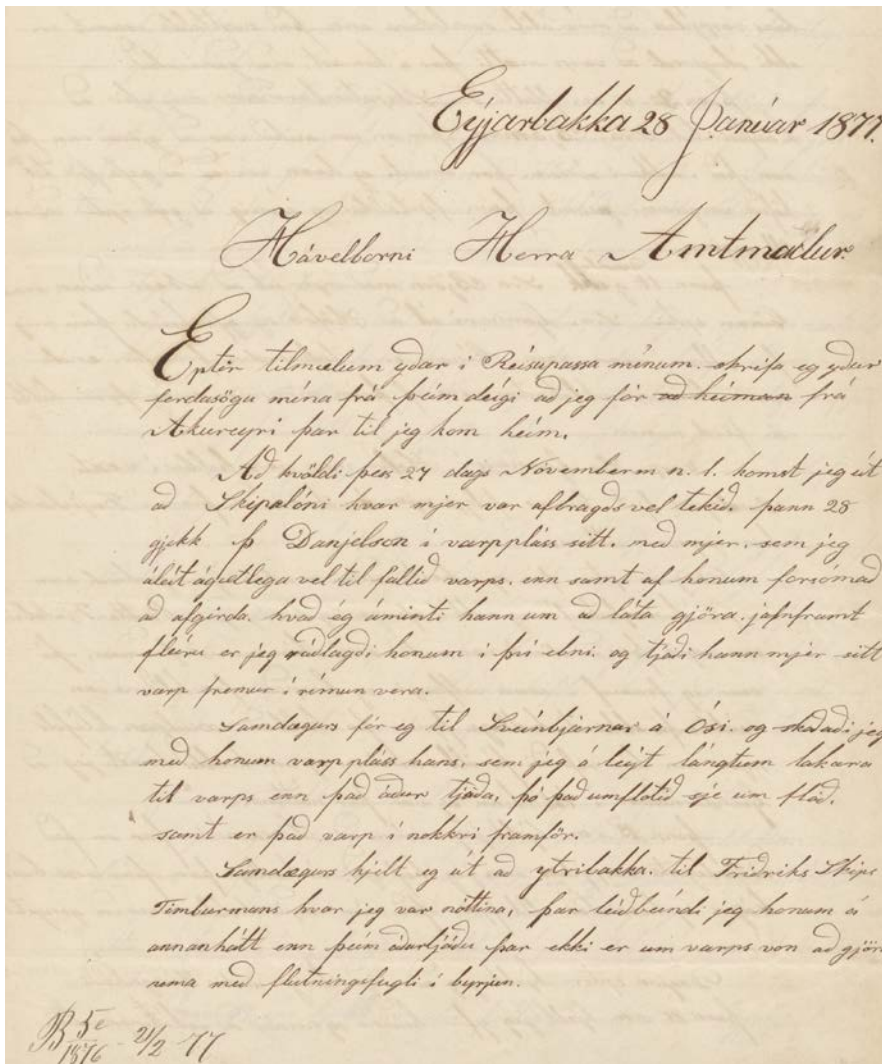 Eyjarbakka 28 Janúar 1877.
Hávelborni Herra Amtmadur.
Eptir tilmælum ydar i Reisupassa mínum. skrifa eg yður
ferdasögu mína frá þeim deígi að jeg fór að heiman frá
Akureyri þar til jeg kom heim.
Að kvöldi þess 27 dags Novemberm n. l. komst jeg út
að Skipalóni hvar mjer var afbragds vel tekið. þann 28
gjekk Þ Danjelson i varppláss sitt. með mjer. sem jeg
áleit ágætlega vel til fallið varps. enn samt af honum forsómað
að afgirda. hvað ég áminti hann um að láta gjöra. jafnframt
fleiru er jeg ráðlagði honum i því ebni. og tjáði hann mjer sitt
varp fremur í rírnun vera.
Samdægurs fór eg til Sveinbjarnar á Ósi. og skoðaði jeg
með honum varppláss hans. sem jeg á leijt lángtum lakara
til varps enn það áður tjáða, þó það umflotið sje um flóð.
samt er það varp í nokkri framför.
Samdægurs hjelt eg út að ytribakka. til Friðriks Skips
Timburmans hvar jeg var nóttina, þar leiðbeindi jeg honum á
annanhátt enn þeim áðurtjáðu þar ekki er um varps von að gjöra
nema með flutningsfugli í byrjun.
B 5e
1876 - 21/2 77